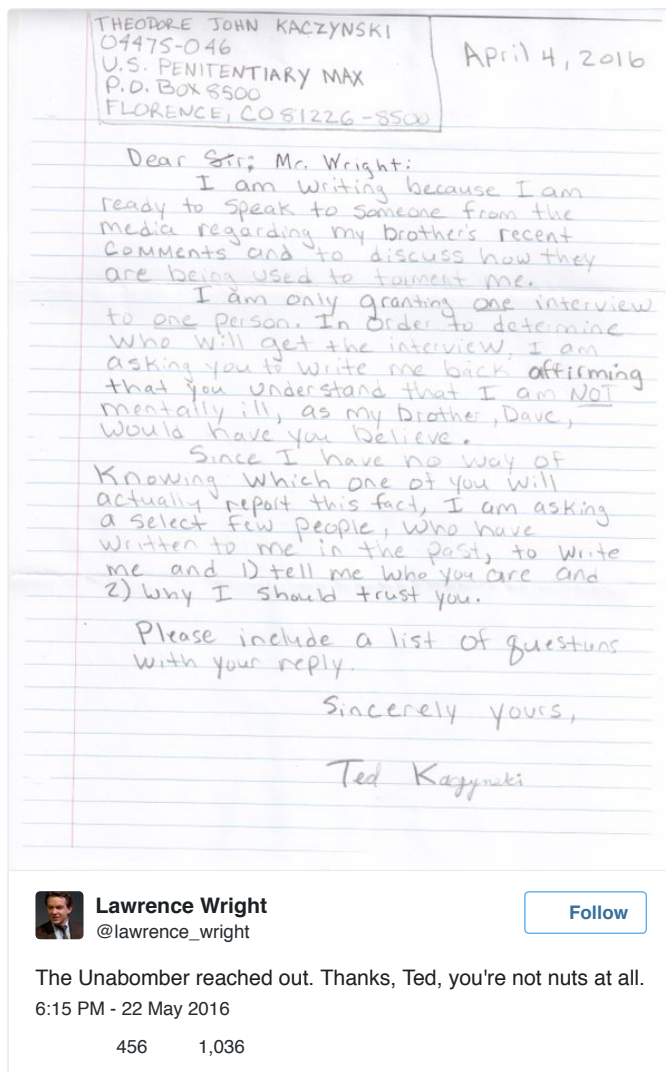 THEODORE JOHN KACZYNSKI
04475-046
U.S. PENITENTIARY MAX
P.O. BOX 8500
FLORENCE, CO 81226-8500
April 4, 2016
Dear Sir; Mr. Wright:
I am writing because I am
ready to speak to someone from the
media regarding my brother's recent
comments and to discuss how they
are being used to torment me.
I am only granting one interview
to one person. In order to determine
who will get the interview, I am
asking you to write me back affirming
that you understand that I am NOT
mentally ill, as my brother, Dave,
would have you believe.
Since I have no way of
knowing which one of you will
actually report this fact, I am asking
a select few people, who have
written to me in the past, to write
me and 1) tell me who you are and
2) why I should trust you.
Please include a list of questions
with your reply.
Sincerely yours,
Ted Kaczynski
Lawrence Wright
@lawrence_wright
Follow
The Unabomber reached out. Thanks, Ted, you're not nuts at all.
6:15 PM - 22 May 2016
456 1,036